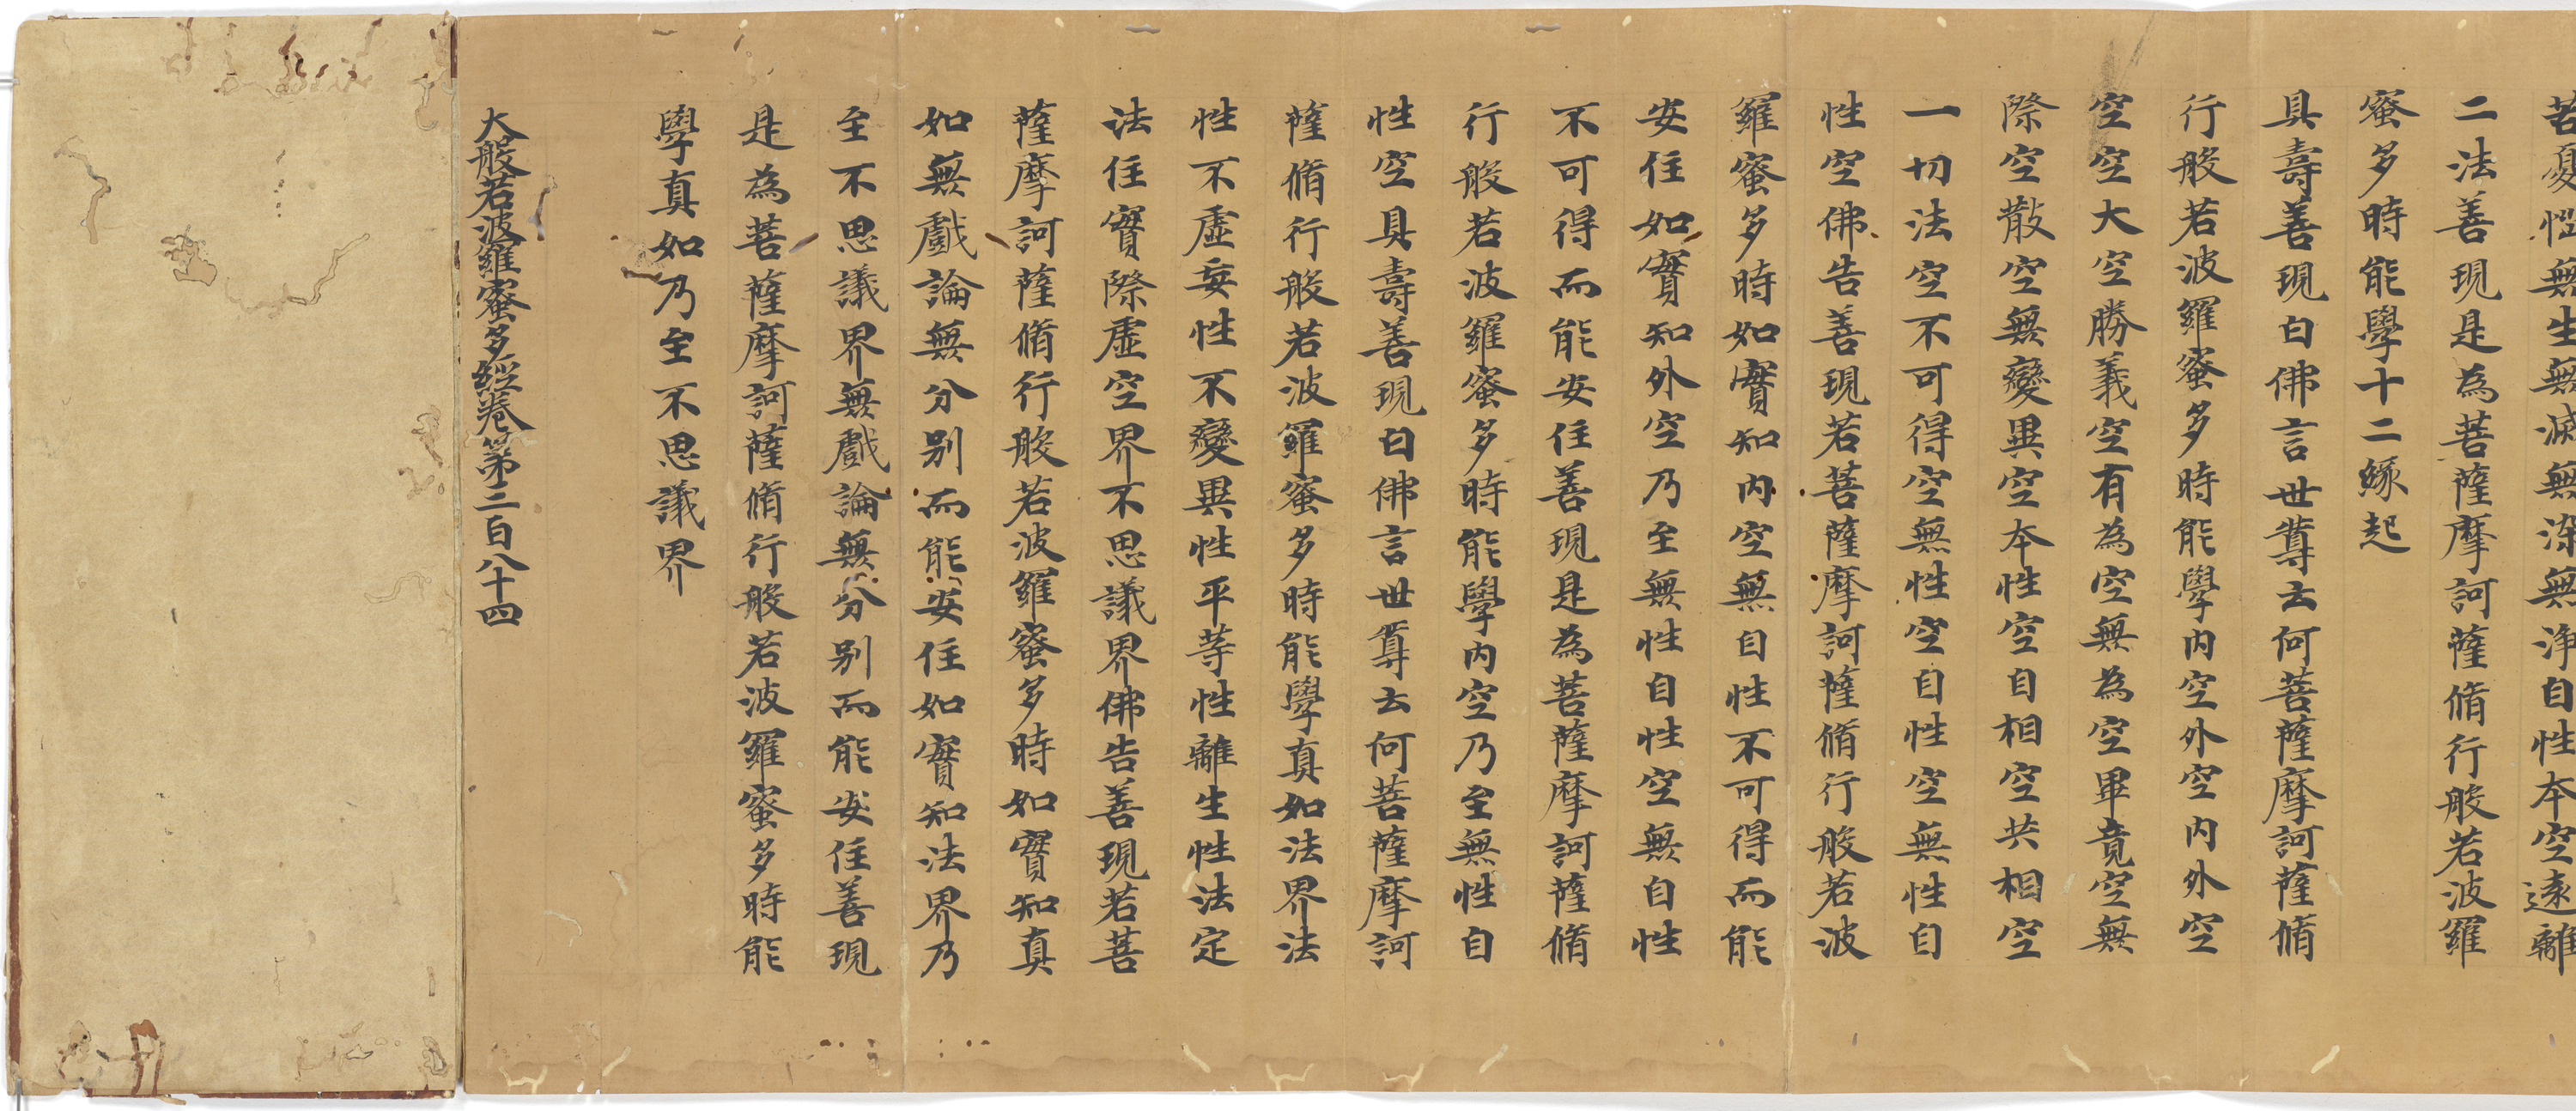 苦憂惱無生無滅無染無淨自性本空遠離
二法善現是為菩薩摩訶薩脩行般若波羅
蜜多時能學十二緣起
具壽善現白佛言世尊云何菩薩摩訶薩脩
行般若波羅蜜多時能學內空外空內外空
空空大空勝義空有為空無為空畢竟空無
際空散空無變異空本性空自相空共相空
一切法空不可得空無性空自性空無性自
性空佛告善現若菩薩摩訶薩脩行般若波
羅蜜多時如實知內空無自性不可得而能
安住如實知外空乃至無性自性空無自性
不可得而能安住善現是為菩薩摩訶薩脩
行般若波羅蜜多時能學內空乃至無性自
性空具壽善現白佛言世尊云何菩薩摩訶
薩脩行般若波羅蜜多時能學真如法界法
性不虛妄性不變異性平等性離生性法定
法住實際虛空界不思議界佛告善現若菩
薩摩訶薩脩行般若波羅蜜多時如實知真
如無戲論無分別而能安住如實知法界乃
至不思議界無戲論無分別而能安住善現
是為菩薩摩訶薩脩行般若波羅蜜多時能
學真如乃至不思議界
大般若波羅蜜多經卷第三百八十四